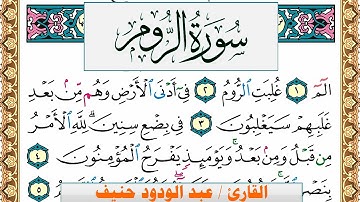 سُورَةُ الرُّومِ
الٓمٓ ١ غُلِبَتِ ٱلرُّومُ ٢ فِىٓ أَدْنَى ٱلْأَرْضِ وَهُم مِّنۢ بَعْدِ
غَلَبِهِمْ سَيَغْلِبُونَ ٣ فِى بِضْعِ سِنِينَ ۗ لِلَّهِ ٱلْأَمْرُ
مِن قَبْلُ وَمِنۢ بَعْدُ ۚ وَيَوْمَئِذٍ يَفْرَحُ ٱلْمُؤْمِنُونَ ٤
بِنَصْرِ ٥
القارئ / عبد الودود حنيف